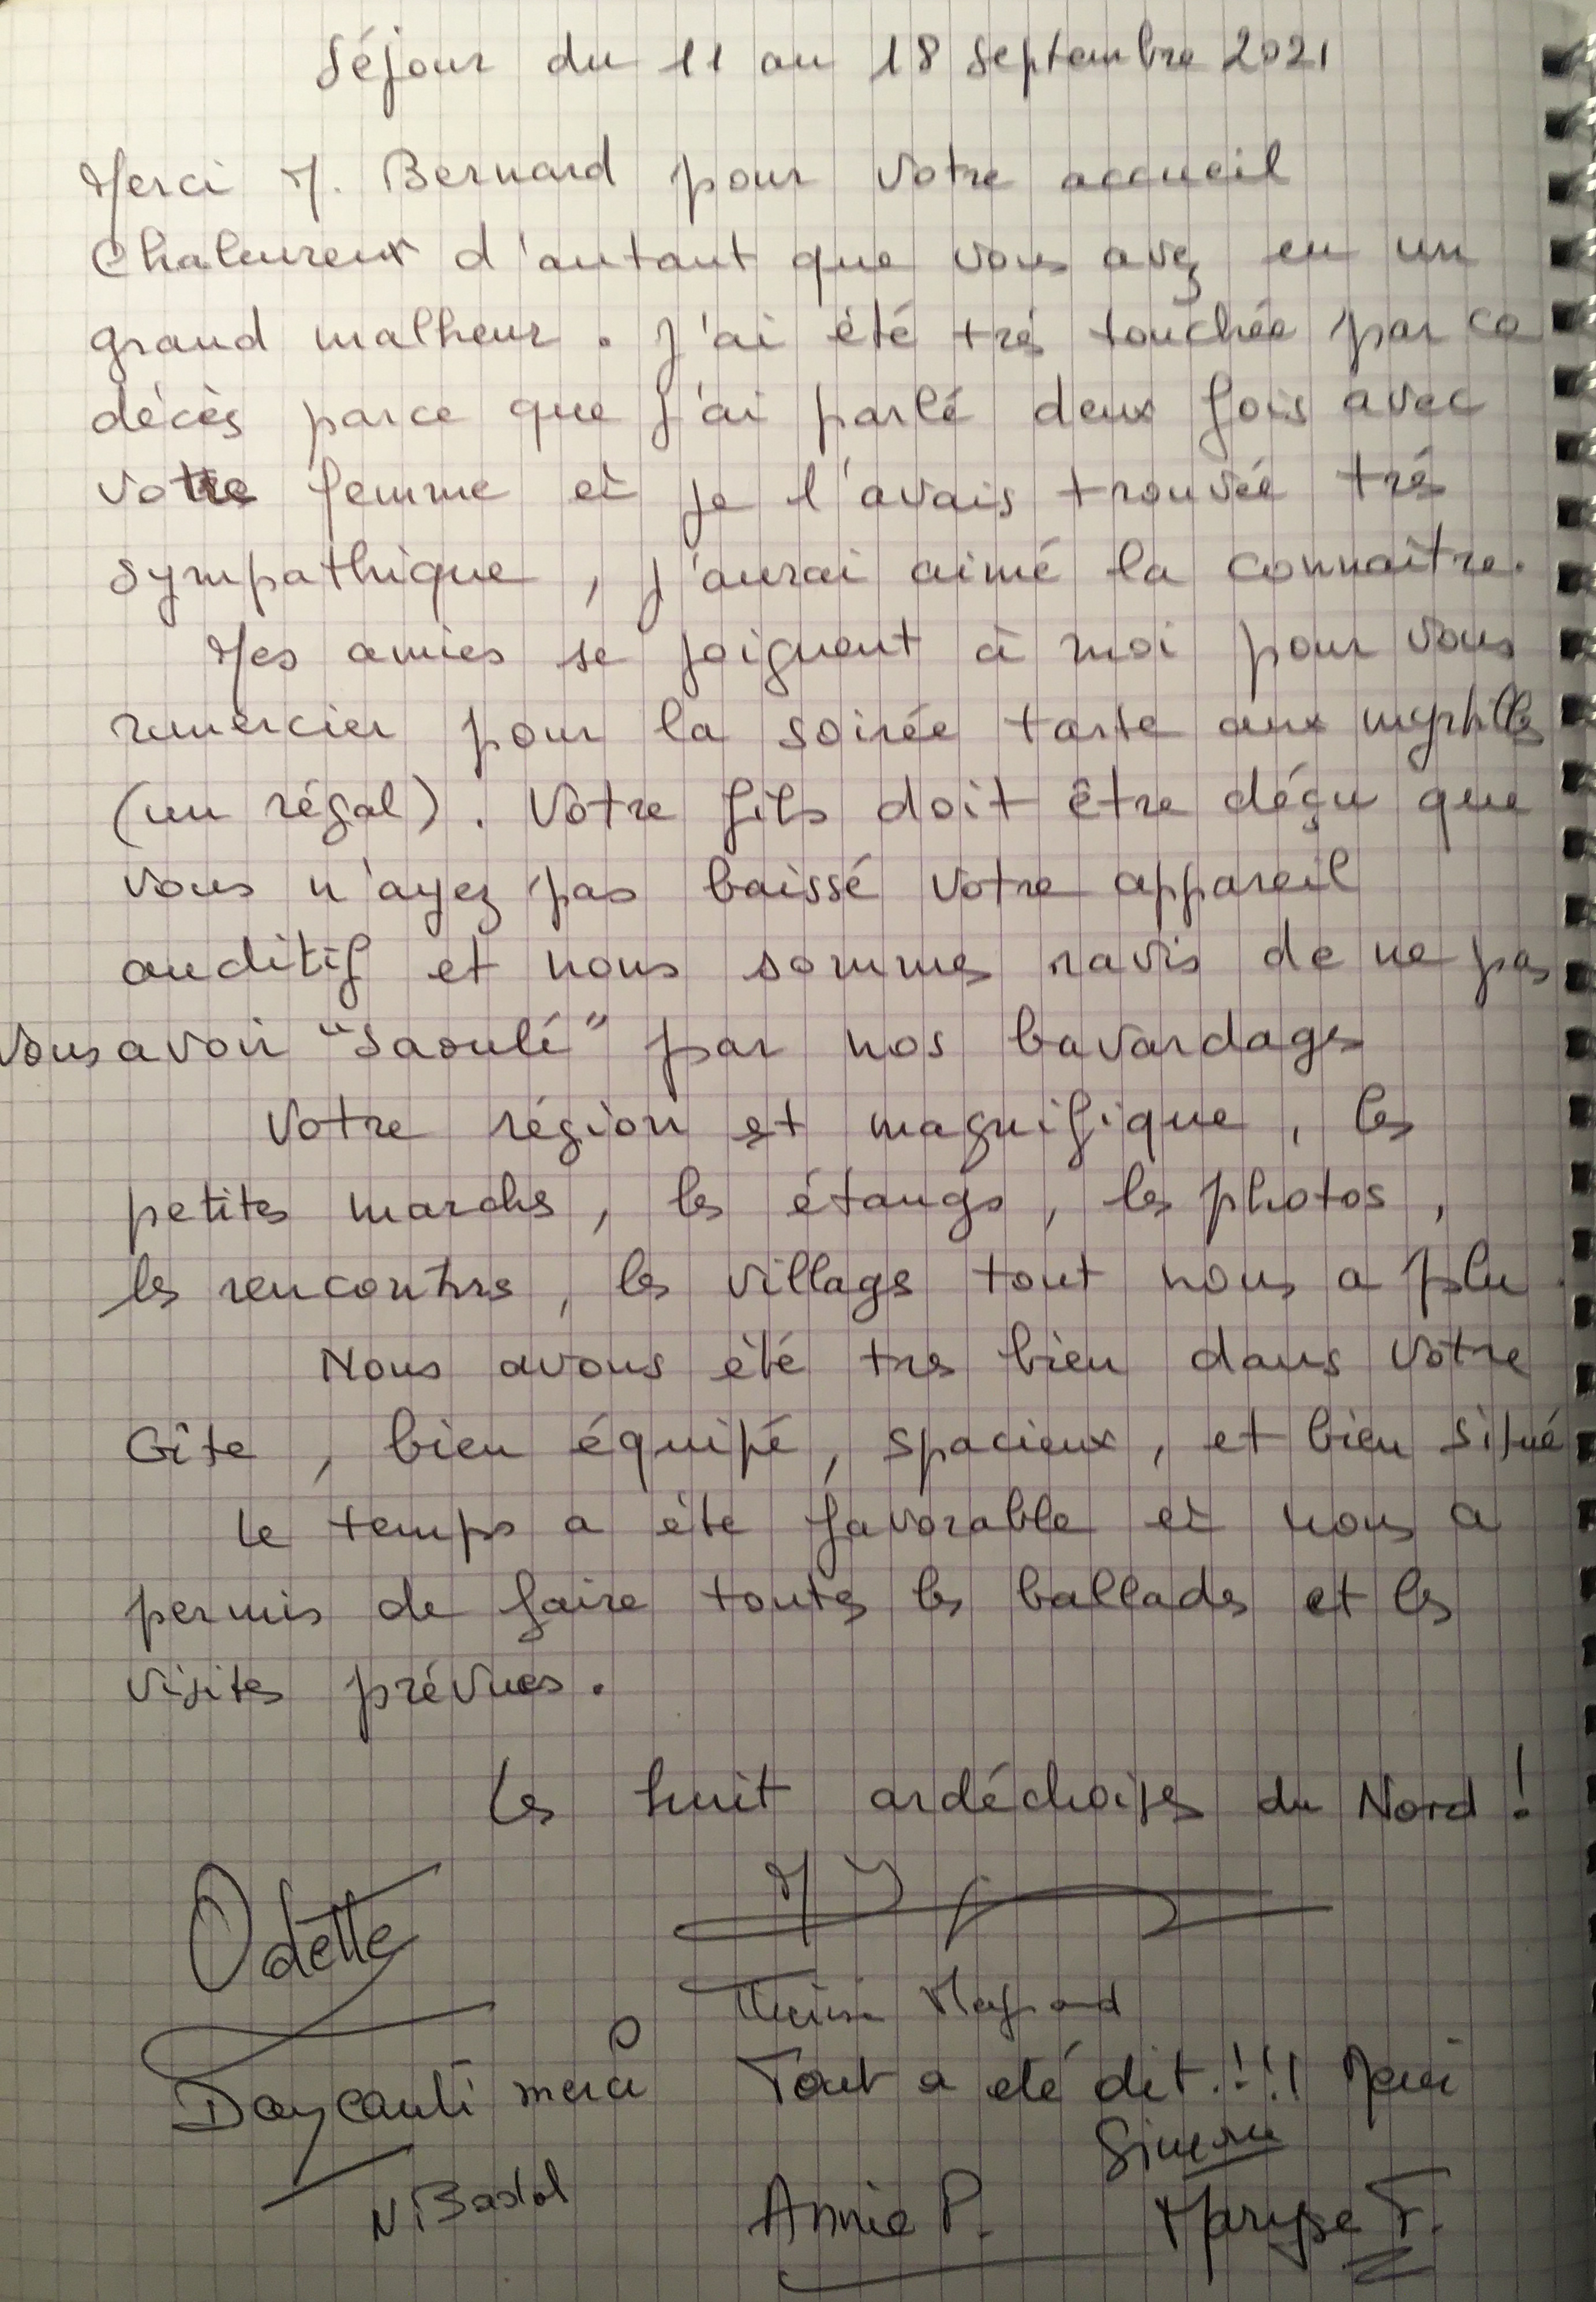 Séjour du 11 au 18 Septembre 2021
Merci M. Bernard pour votre accueil
chaleureux d'autant que vous avez eu un
grand malheur. J'ai été trés touchée par ce
décès parce que j'ai parlé deux fois avec
votre femme et je l'avais trouvée trés
sympathique, j'aurai aimé la connaître.
Mes amies se joignent à moi pour vous
remercier pour la soirée tarte aux myrtilles
(un régal). Votre fils doit être déçu que
vous n'ayez pas baissé votre appareil
auditif et nous sommes ravis de ne pas
vous avoir "saoulé" par nos bavardages
Votre région est magnifique, les
petites marches, les étangs, les photos,
les rencontres, les villages tout nous a plu.
Nous avons été tres bien dans votre
Gîte, bien équipé, spacieux, et bien situé
Le temps a été favorable et nous a
permis de faire toutes les ballades et les
visites prévues.
Les huit ardéchoises du Nord !
Odette
merci
Tout a été dit.!!! Merci
Simone
Annie P.
Maryse F.